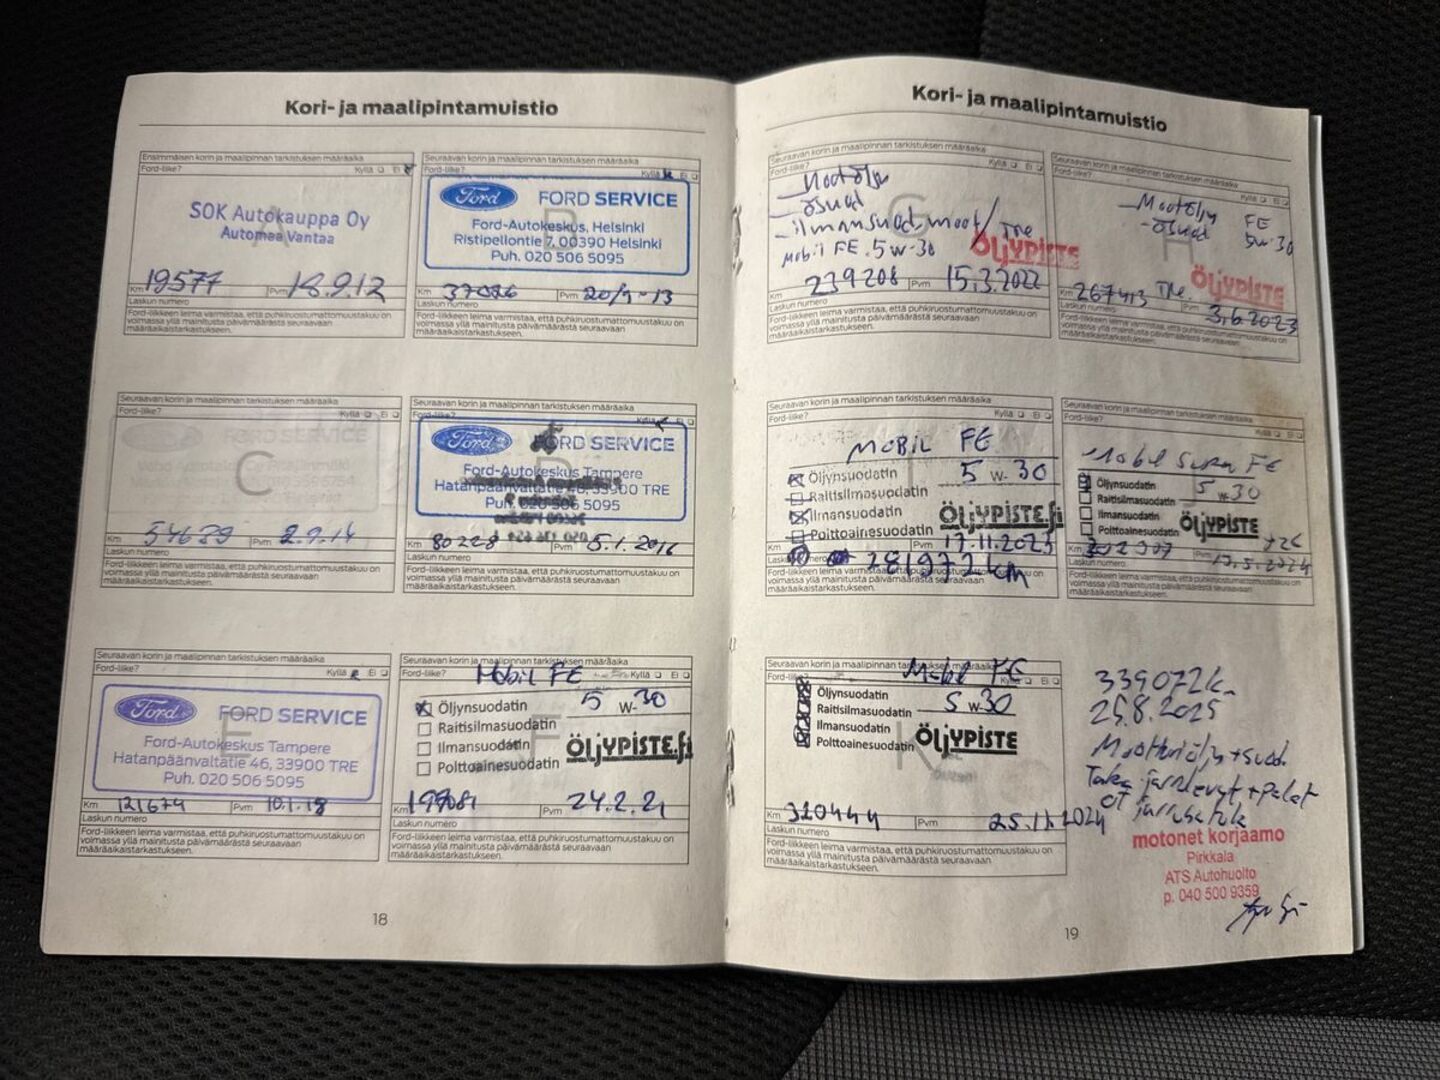 Kori- ja maalipintamuistio
Ensimmäisen korin ja maalipinnan tarkistuksen määräaika
Ford-liike? Kyllä Ei
A
SOK Autokauppa Oy
Automaa Vantaa
Km 19577 Pvm 18.9.12
Laskun numero
Ford-liikkeen leima varmistaa, että puhkiruostumattomuustakuu on
voimassa yllä mainitusta päivämäärästä seuraavaan
määräaikaistarkastukseen.
Seuraavan korin ja maalipinnan tarkistuksen määräaika
Ford-liike? Kyllä Ei
B
Ford FORD SERVICE
Ford-Autokeskus, Helsinki
Ristipellontie 7, 00390 Helsinki
Puh. 020 506 5095
Km Pvm 20/9-13
Laskun numero
Ford-liikkeen leima varmistaa, että puhkiruostumattomuustakuu on
voimassa yllä mainitusta päivämäärästä seuraavaan
määräaikaistarkastukseen.
Seuraavan korin ja maalipinnan tarkistuksen määräaika
Ford-liike? Kyllä Ei
Ford FORD SERVICE
C
Km Pvm 2.9.14
Laskun numero
Ford-liikkeen leima varmistaa, että puhkiruostumattomuustakuu on
voimassa yllä mainitusta päivämäärästä seuraavaan
määräaikaistarkastukseen.
Seuraavan korin ja maalipinnan tarkistuksen määräaika
Ford-liike? Kyllä Ei
D
Ford FORD SERVICE
Ford-Autokeskus Tampere
Hatanpäänvaltatie 46, 33900 TRE
Puh. 020 506 5095
Km 80228 Pvm 5.1.2016
Laskun numero
Ford-liikkeen leima varmistaa, että puhkiruostumattomuustakuu on
voimassa yllä mainitusta päivämäärästä seuraavaan
määräaikaistarkastukseen.
Seuraavan korin ja maalipinnan tarkistuksen määräaika
Ford-liike? Kyllä Ei
E
Ford FORD SERVICE
Ford-Autokeskus Tampere
Hatanpäänvaltatie 46, 33900 TRE
Puh. 020 506 5095
Km 121674 Pvm 10.1.18
Laskun numero
Ford-liikkeen leima varmistaa, että puhkiruostumattomuustakuu on
voimassa yllä mainitusta päivämäärästä seuraavaan
määräaikaistarkastukseen.
Seuraavan korin ja maalipinnan tarkistuksen määräaika
Ford-liike? Mobil FE
F
Öljynsuodatin 5 W-30
Raitisilmasuodatin
Ilmansuodatin
Polttoainesuodatin ÖLJYPISTE.fi
Km Pvm 24.2.21
Laskun numero
Ford-liikkeen leima varmistaa, että puhkiruostumattomuustakuu on
voimassa yllä mainitusta päivämäärästä seuraavaan
määräaikaistarkastukseen.
18
Kori- ja maalipintamuistio
Seuraavan korin ja maalipinnan tarkistuksen määräaika
Ford-liike? Kyllä Ei
G
- ösuod
- ilmansuod, moot/ TRE
Mobil FE. 5W-30 ÖLJYPISTE
Km 239208 Pvm 15.3.2022
Laskun numero
Ford-liikkeen leima varmistaa, että puhkiruostumattomuustakuu on
voimassa yllä mainitusta päivämäärästä seuraavaan
määräaikaistarkastukseen.
Seuraavan korin ja maalipinnan tarkistuksen määräaika
Ford-liike? Kyllä Ei
H
- Moottöljy FE
- ösuod 5w-30
ÖLJYPISTE
Km 267413 TRE. Pvm 3.6.2023
Laskun numero
Ford-liikkeen leima varmistaa, että puhkiruostumattomuustakuu on
voimassa yllä mainitusta päivämäärästä seuraavaan
määräaikaistarkastukseen.
Seuraavan korin ja maalipinnan tarkistuksen määräaika
Ford-liike? Kyllä Ei
MOBIL FE
Öljynsuodatin 5 W-30
Raitisilmasuodatin
Ilmansuodatin
Polttoainesuodatin ÖLJYPISTE.fi
Km Pvm 17.11.2023
281972 km
Ford-liikkeen leima varmistaa, että puhkiruostumattomuustakuu on
voimassa yllä mainitusta päivämäärästä seuraavaan
määräaikaistarkastukseen.
Seuraavan korin ja maalipinnan tarkistuksen määräaika
Ford-liike? Kyllä Ei
Mobil Super FE
Öljynsuodatin 5 W 30
Raitisilmasuodatin
Ilmansuodatin
Polttoainesuodatin ÖLJYPISTE
Km Pvm
Laskun numero
Ford-liikkeen leima varmistaa, että puhkiruostumattomuustakuu on
voimassa yllä mainitusta päivämäärästä seuraavaan
määräaikaistarkastukseen.
Seuraavan korin ja maalipinnan tarkistuksen määräaika
Mobil FE Kyllä Ei
Öljynsuodatin 5 W 30
Raitisilmasuodatin
Ilmansuodatin
Polttoainesuodatin ÖLJYPISTE
K
Km 320444 Pvm 25.11.2024
Laskun numero
Ford-liikkeen leima varmistaa, että puhkiruostumattomuustakuu on
voimassa yllä mainitusta päivämäärästä seuraavaan
määräaikaistarkastukseen.
339072k
25.8.2025
Moottoriöljy + suod.
Taka jarrulevyt + palat
motonet korjaamo
Pirkkala
ATS Autohuolto
p. 040 500 9359
19